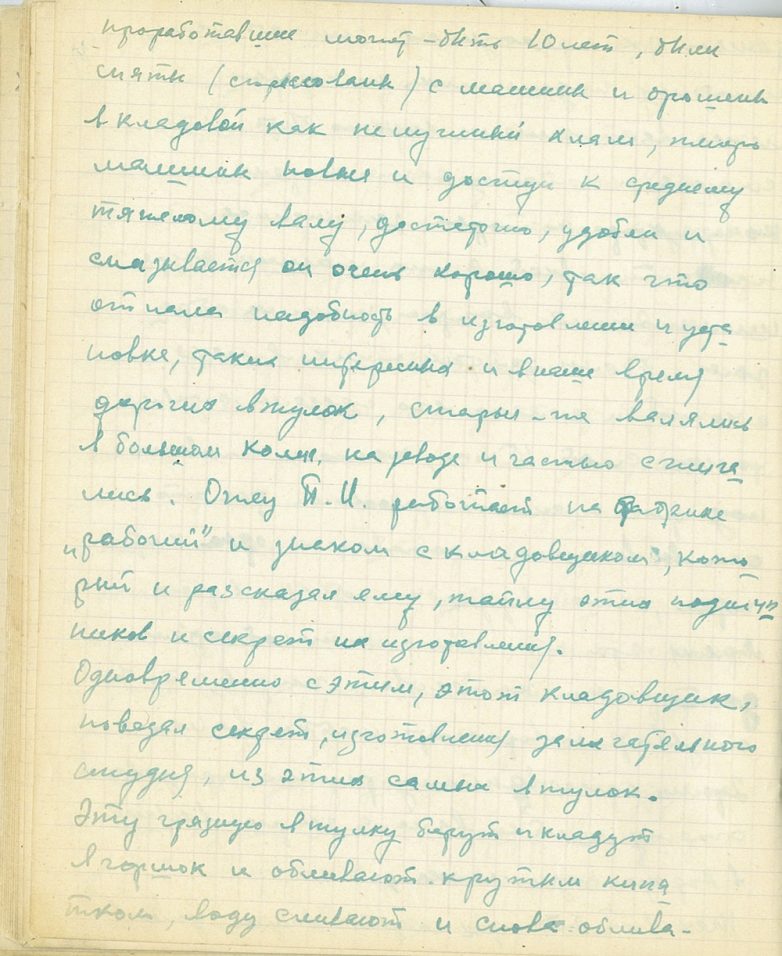 проработавшие может-быть 10 лет, были
сняты (спрессованы) с машины и брошены
в кладовой как ненужный хлам, теперь
машины новые и доступ к среднему
тяжелому валу, достаточно, удобен и
смазывается он очень хорошо, так что
отпала надобность в изготовлении и уста
новке, таких интересных и в наше время
дорогих втулок, старые-же валялись
в большом колич. на заводе и частью сжига
лись. Отец П.И. работает на фабрике
„рабочий" и знаком с кладовщиком", кото
рый и рассказал ему, тайну этих подшип
ников и секрет их изготовления.
Одновременно с этим, этот кладовщик,
поведал секрет, изготовления замечательного
студня, из этих самых втулок.
Эту грязную втулку берут и кладут
в горшок и обливают крутым кипя
тком, воду сливают и снова облива-